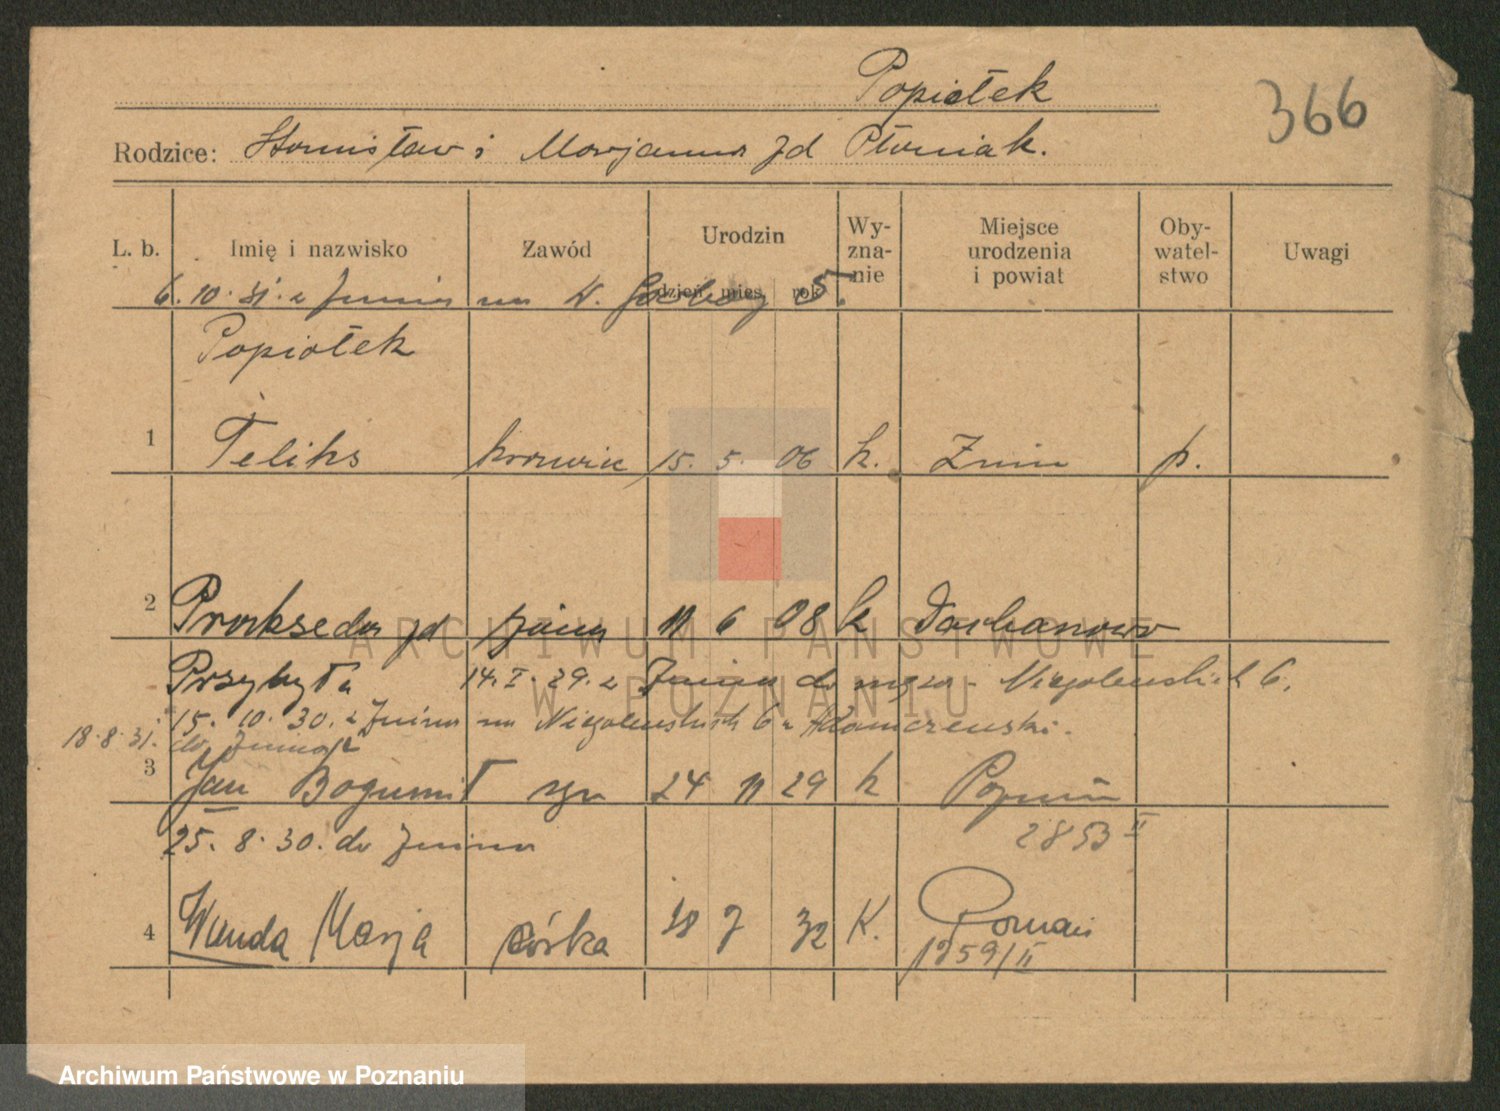 Popiołek
366
Rodzice: Stanisław i Marjanna zd Płuciak.
L. b. Imię i nazwisko Zawód Urodzin dzień mies. rok Wy-zna-nie Miejsce urodzenia i powiat Oby-watel-stwo Uwagi
6. 10. 31. z Żnina na W. Garbary 5.
Popiołek
1 Feliks krawiec 15. 5. 06 k. Żnin p.
2 Prakseda zd żona 11 6 08 k Dochanowo
Przybyła 14. I. 29. z Żnina do męża - Niegolewskich 6.
15. 10. 30. z Żnina na Niegolewskich 6 u Adamczewski.
18. 8. 31. do Żnina
3 Jan Bogumił syn 24 11 29 k Poznań
2853 II
25. 8. 30. do Żnina
4 Wanda Marja córka 18 7 32 K. Poznań
1259/II
ARCHIWUM PAŃSTWOWE
W POZNANIU
Archiwum Państwowe w Poznaniu